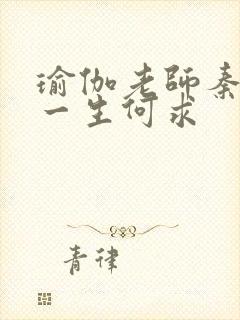 瑜伽老師秦
一生何求
青律